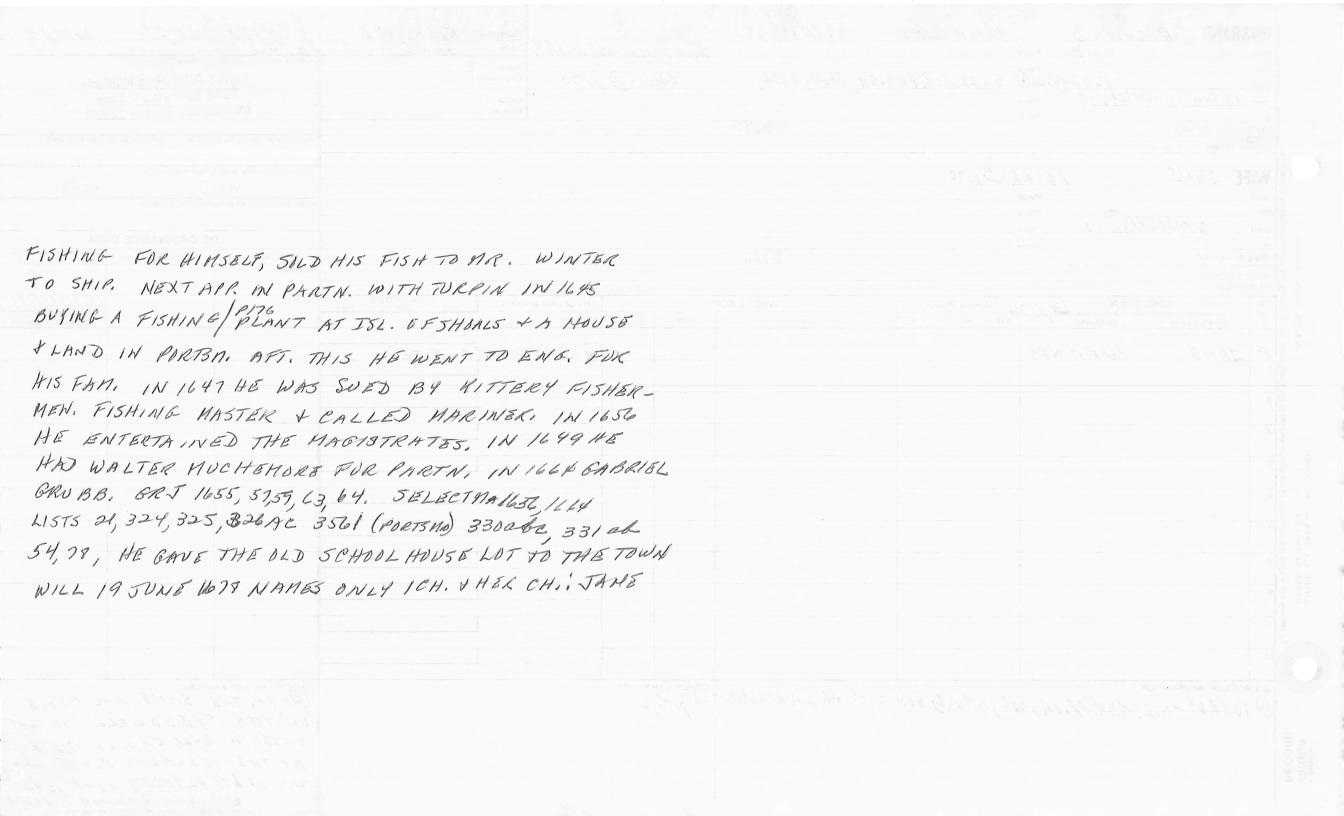 FISHING FOR HIMSELF, SOLD HIS FISH TO MR. WINTER
TO SHIP. NEXT APP. IN PARTN. WITH TURPIN IN 1645
BUYING A FISHING/P176 PLANT AT ISL. OF SHOALS & A HOUSE
& LAND IN PORTSM. AFT. THIS HE WENT TO ENG. FOR
HIS FAM. IN 1647 HE WAS SUED BY KITTERY FISHER-
MEN. FISHING MASTER & CALLED MARINER. IN 1656
HE ENTERTAINED THE MAGISTRATES. IN 1649 HE
HAD WALTER MUCHEMORE FOR PARTN, IN 1664 GABRIEL
GRUBB. GR-J 1655, 57, 59, 63, 64. SELECTMA 1656, 1664
LISTS 21, 324, 325, 326AC 356l (PORTSMO) 330abc, 331ab
54, 78, HE GAVE THE OLD SCHOOL HOUSE LOT TO THE TOWN
WILL 19 JUNE 1678 NAMES ONLY 1 CH. & HER CH.: JANE